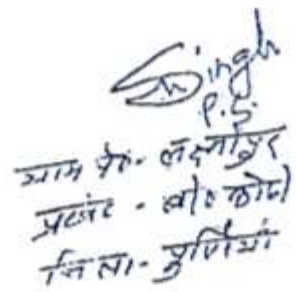 Singh
P.S.
ग्राम पं०- लक्ष्मीपुर
प्रखंड -
जिला- पुर्णियां